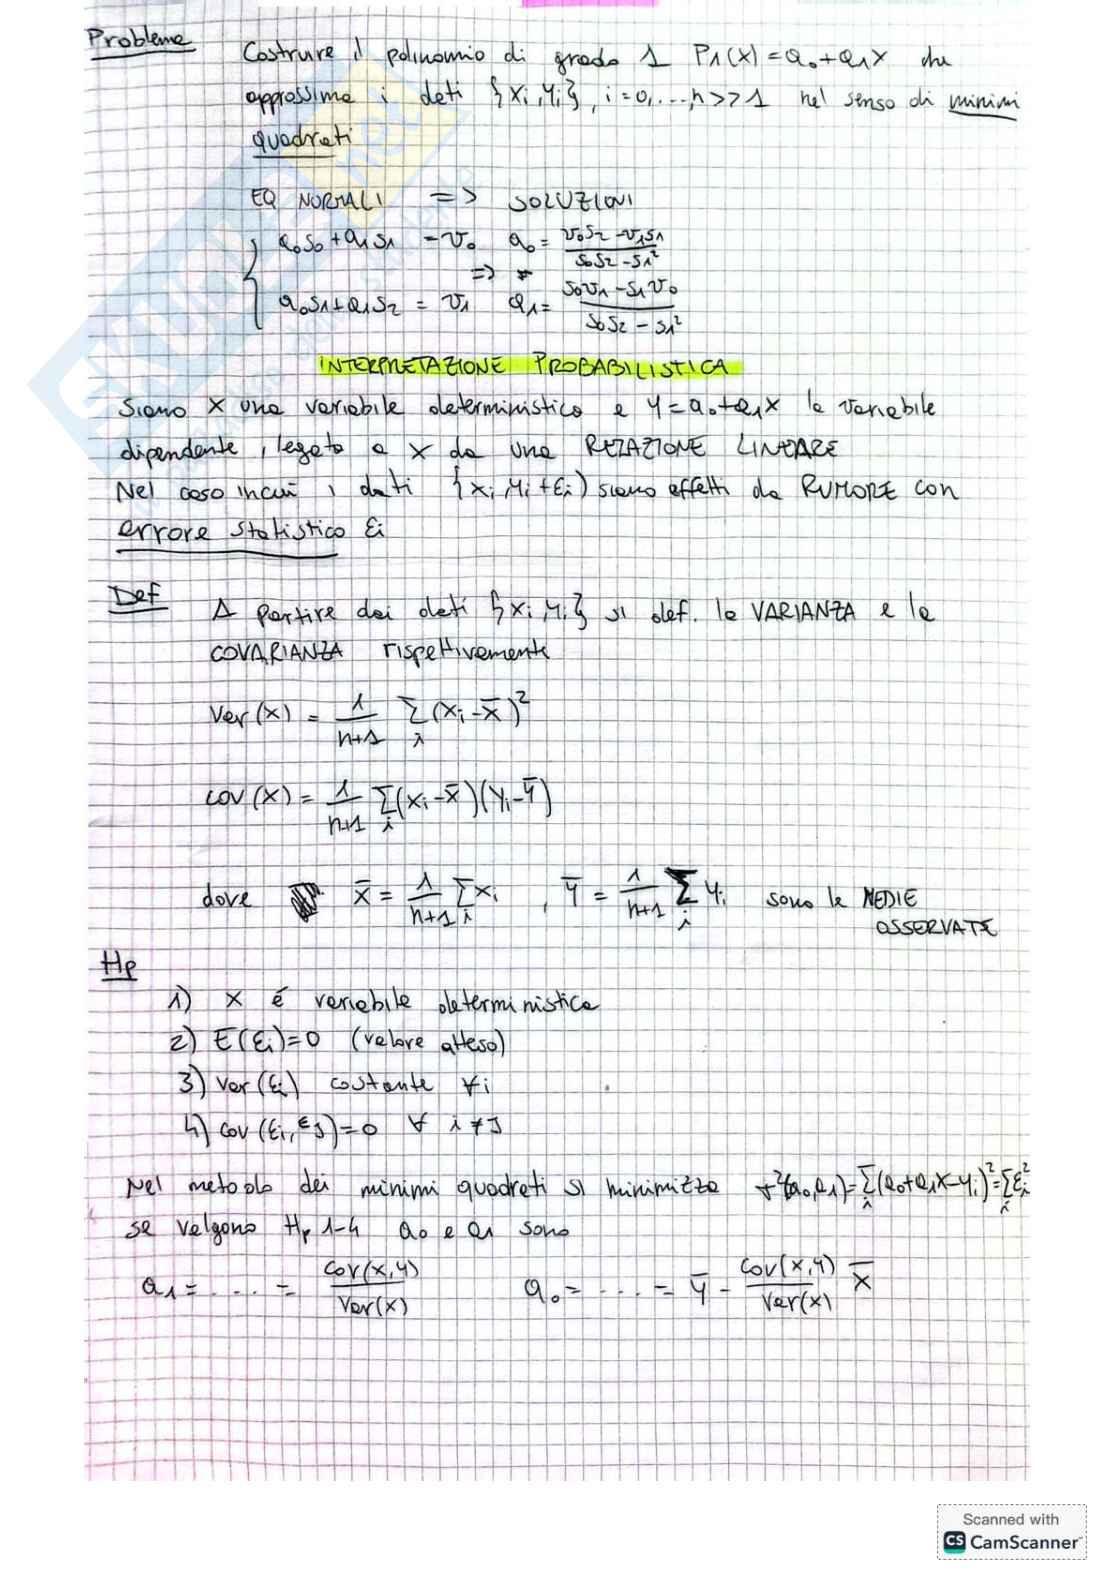 Problema
Costruire il polinomio di grado 1 P1(x) = a0+a1x che
approssima i dati {xi, yi}, i=0,...,n>>1 nel senso di minimi
quadrati
EQ NORMALI => SOLUZIONI
a0s0+a1s1 = v0 a0 = (v0s2 - v1s1)/(s0s2 - s1²)
=>
a0s1+a1s2 = v1 a1 = (s0v1 - s1v0)/(s0s2 - s1²)
INTERPRETAZIONE PROBABILISTICA
Siano x una variabile deterministica e y = a0+a1x la variabile
dipendente, legata a x da una RELAZIONE LINEARE
Nel caso in cui i dati {xi, yi+εi) siano affetti da RUMORE con
errore statistico εi
Def
A partire dai dati {xi, yi} si def. la VARIANZA e la
COVARIANZA rispettivamente
Var(x) = 1/(n+1) Σi (xi - x̄)²
cov(x) = 1/(n+1) Σi (xi - x̄)(yi - ȳ)
dove x̄ = 1/(n+1) Σi xi , ȳ = 1/(n+1) Σi yi sono le MEDIE
OSSERVATE
Hp
1) x é variabile deterministica
2) E(εi)=0 (valore atteso)
3) var(εi) costante ∀i
4) cov(εi, εj)=0 ∀ i≠j
Nel metodo dei minimi quadrati si minimizza r²(a0,a1)=Σi(a0+a1x-yi)²=Σi εi²
se valgono Hp 1-4 a0 e a1 sono
a1 = ... = cov(x,y)/Var(x) a0 = ... = ȳ - cov(x,y)/Var(x) x̄
Scanned with
CS CamScanner